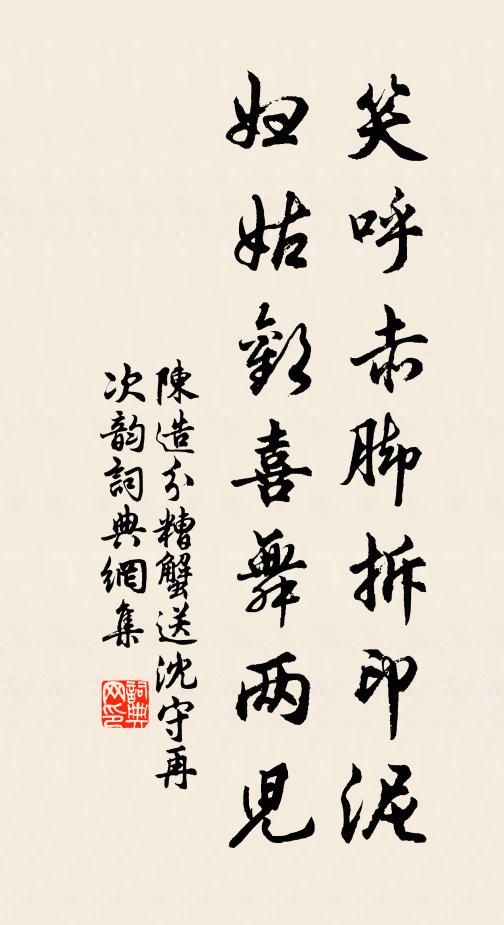 笑呼赤脚拆印泥
妇姑歡喜舞两児
陳造分糟蟹送沈守再
次韵詞典網集
詞典网印